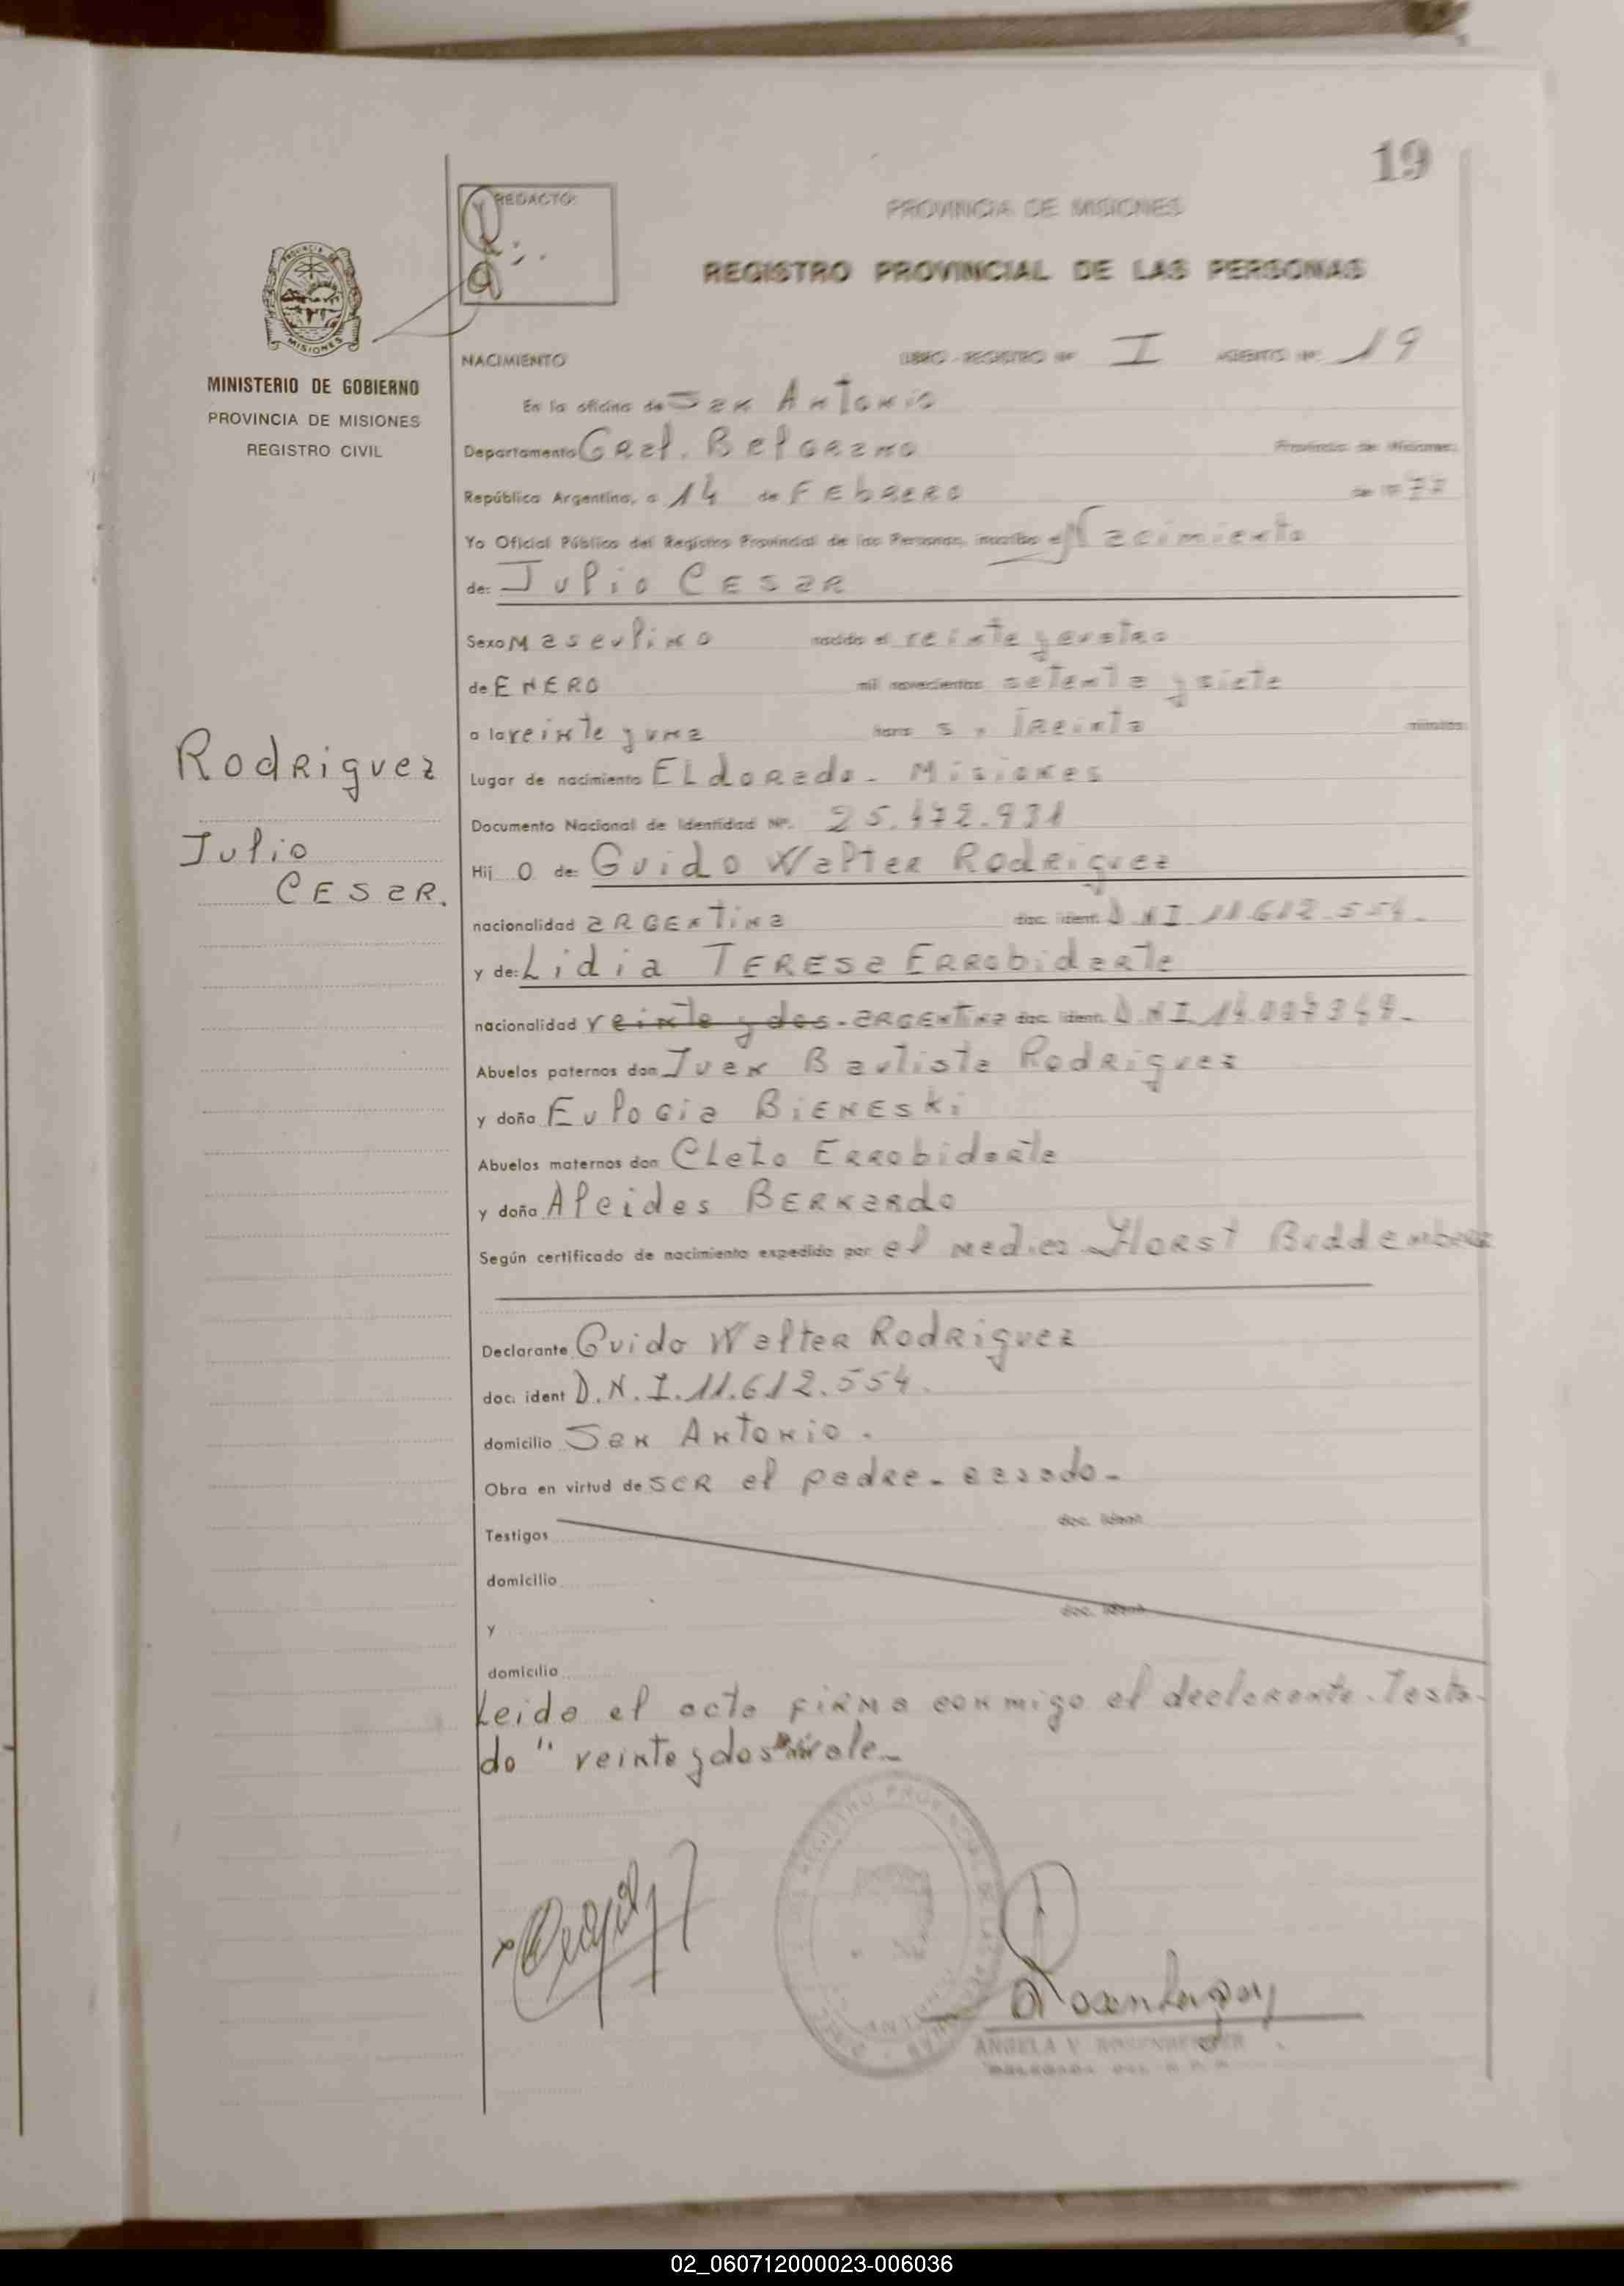 19
REDACTO:
PROVINCIA DE MISIONES
REGISTRO PROVINCIAL DE LAS PERSONAS
PROVINCIA DE
MISIONES
MINISTERIO DE GOBIERNO
PROVINCIA DE MISIONES
REGISTRO CIVIL
NACIMIENTO LIBRO - REGISTRO Nº I ASIENTO Nº 19
En la oficina de San Antonio
Departamento Gral. Belgrano Provincia de Misiones,
República Argentina, a 14 de Febrero de 1977
Yo Oficial Público del Registro Provincial de las Personas, inscribo el Nacimiento
de: Julio Cesar
Sexo Masculino nacido el veinte y cuatro
de ENERO mil novecientos setenta y siete
a la veinte y una hora s, Treinta minutos
Lugar de nacimiento ELdorado - Misiones
Documento Nacional de Identidad Nº. 25.472.931
Hij o de: Guido Walter Rodriguez
nacionalidad argentina doc. ident. D.N.I. 11.612.554.
y de: Lidia Teresa Errobidarte
nacionalidad veinte y dos - argentina doc. ident. D.N.I.
Abuelos paternos don Juan Bautista Rodriguez
y doña Eulogia Bieneski
Abuelos maternos don Cleto Errobidarte
y doña Alcides Bernardo
Según certificado de nacimiento expedido por el medico Horst
Declarante Guido Walter Rodriguez
doc. ident D.N.I. 11.612.554.
domicilio San Antonio.
Obra en virtud de ser el padre - casado -
Testigos doc. ident.
domicilio
y doc. ident.
domicilio
Leida el acta firma conmigo el declarante. Testa-
do " veinte y dos " vale -
Rodriguez
Julio
Cesar.
REGISTRO PROVINCIAL DE LAS PERSONAS
ANGELA V.
02_060712000023-006036